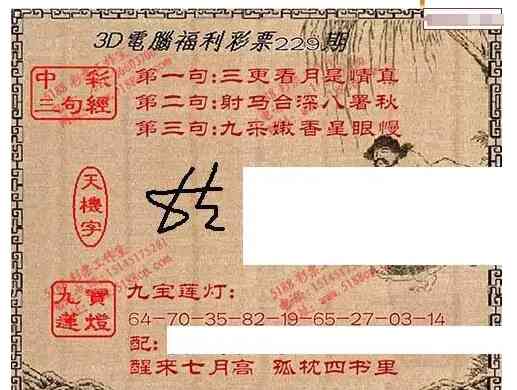 3D電腦福利彩票229期
中彩
三句經
第一句:三更看月星晴真
第二句:射马台深八署秋
第三句:九采嫩香星眼慢
天機字
九寶
蓮燈
九宝莲灯:
64-70-35-82-19-65-27-03-14
配:
醒來七月高 孤枕四书里